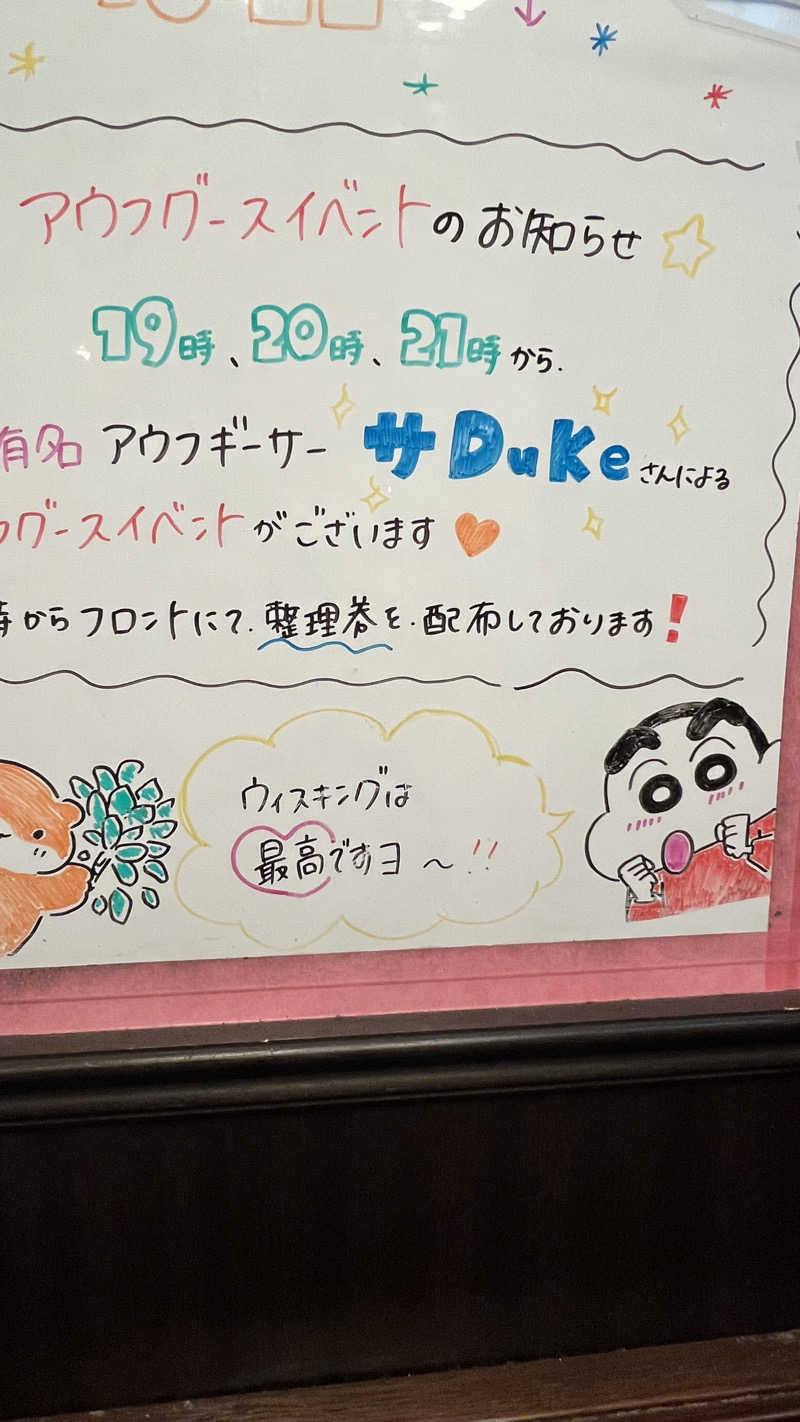 アウフグースイベントのお知らせ
19時、20時、21時から.
有名 アウフギーサー サDuKeさんによる
グースイベントがございます
からフロントにて.整理券を.配布しております!
ウィスキングは
最高ですヨ〜!!